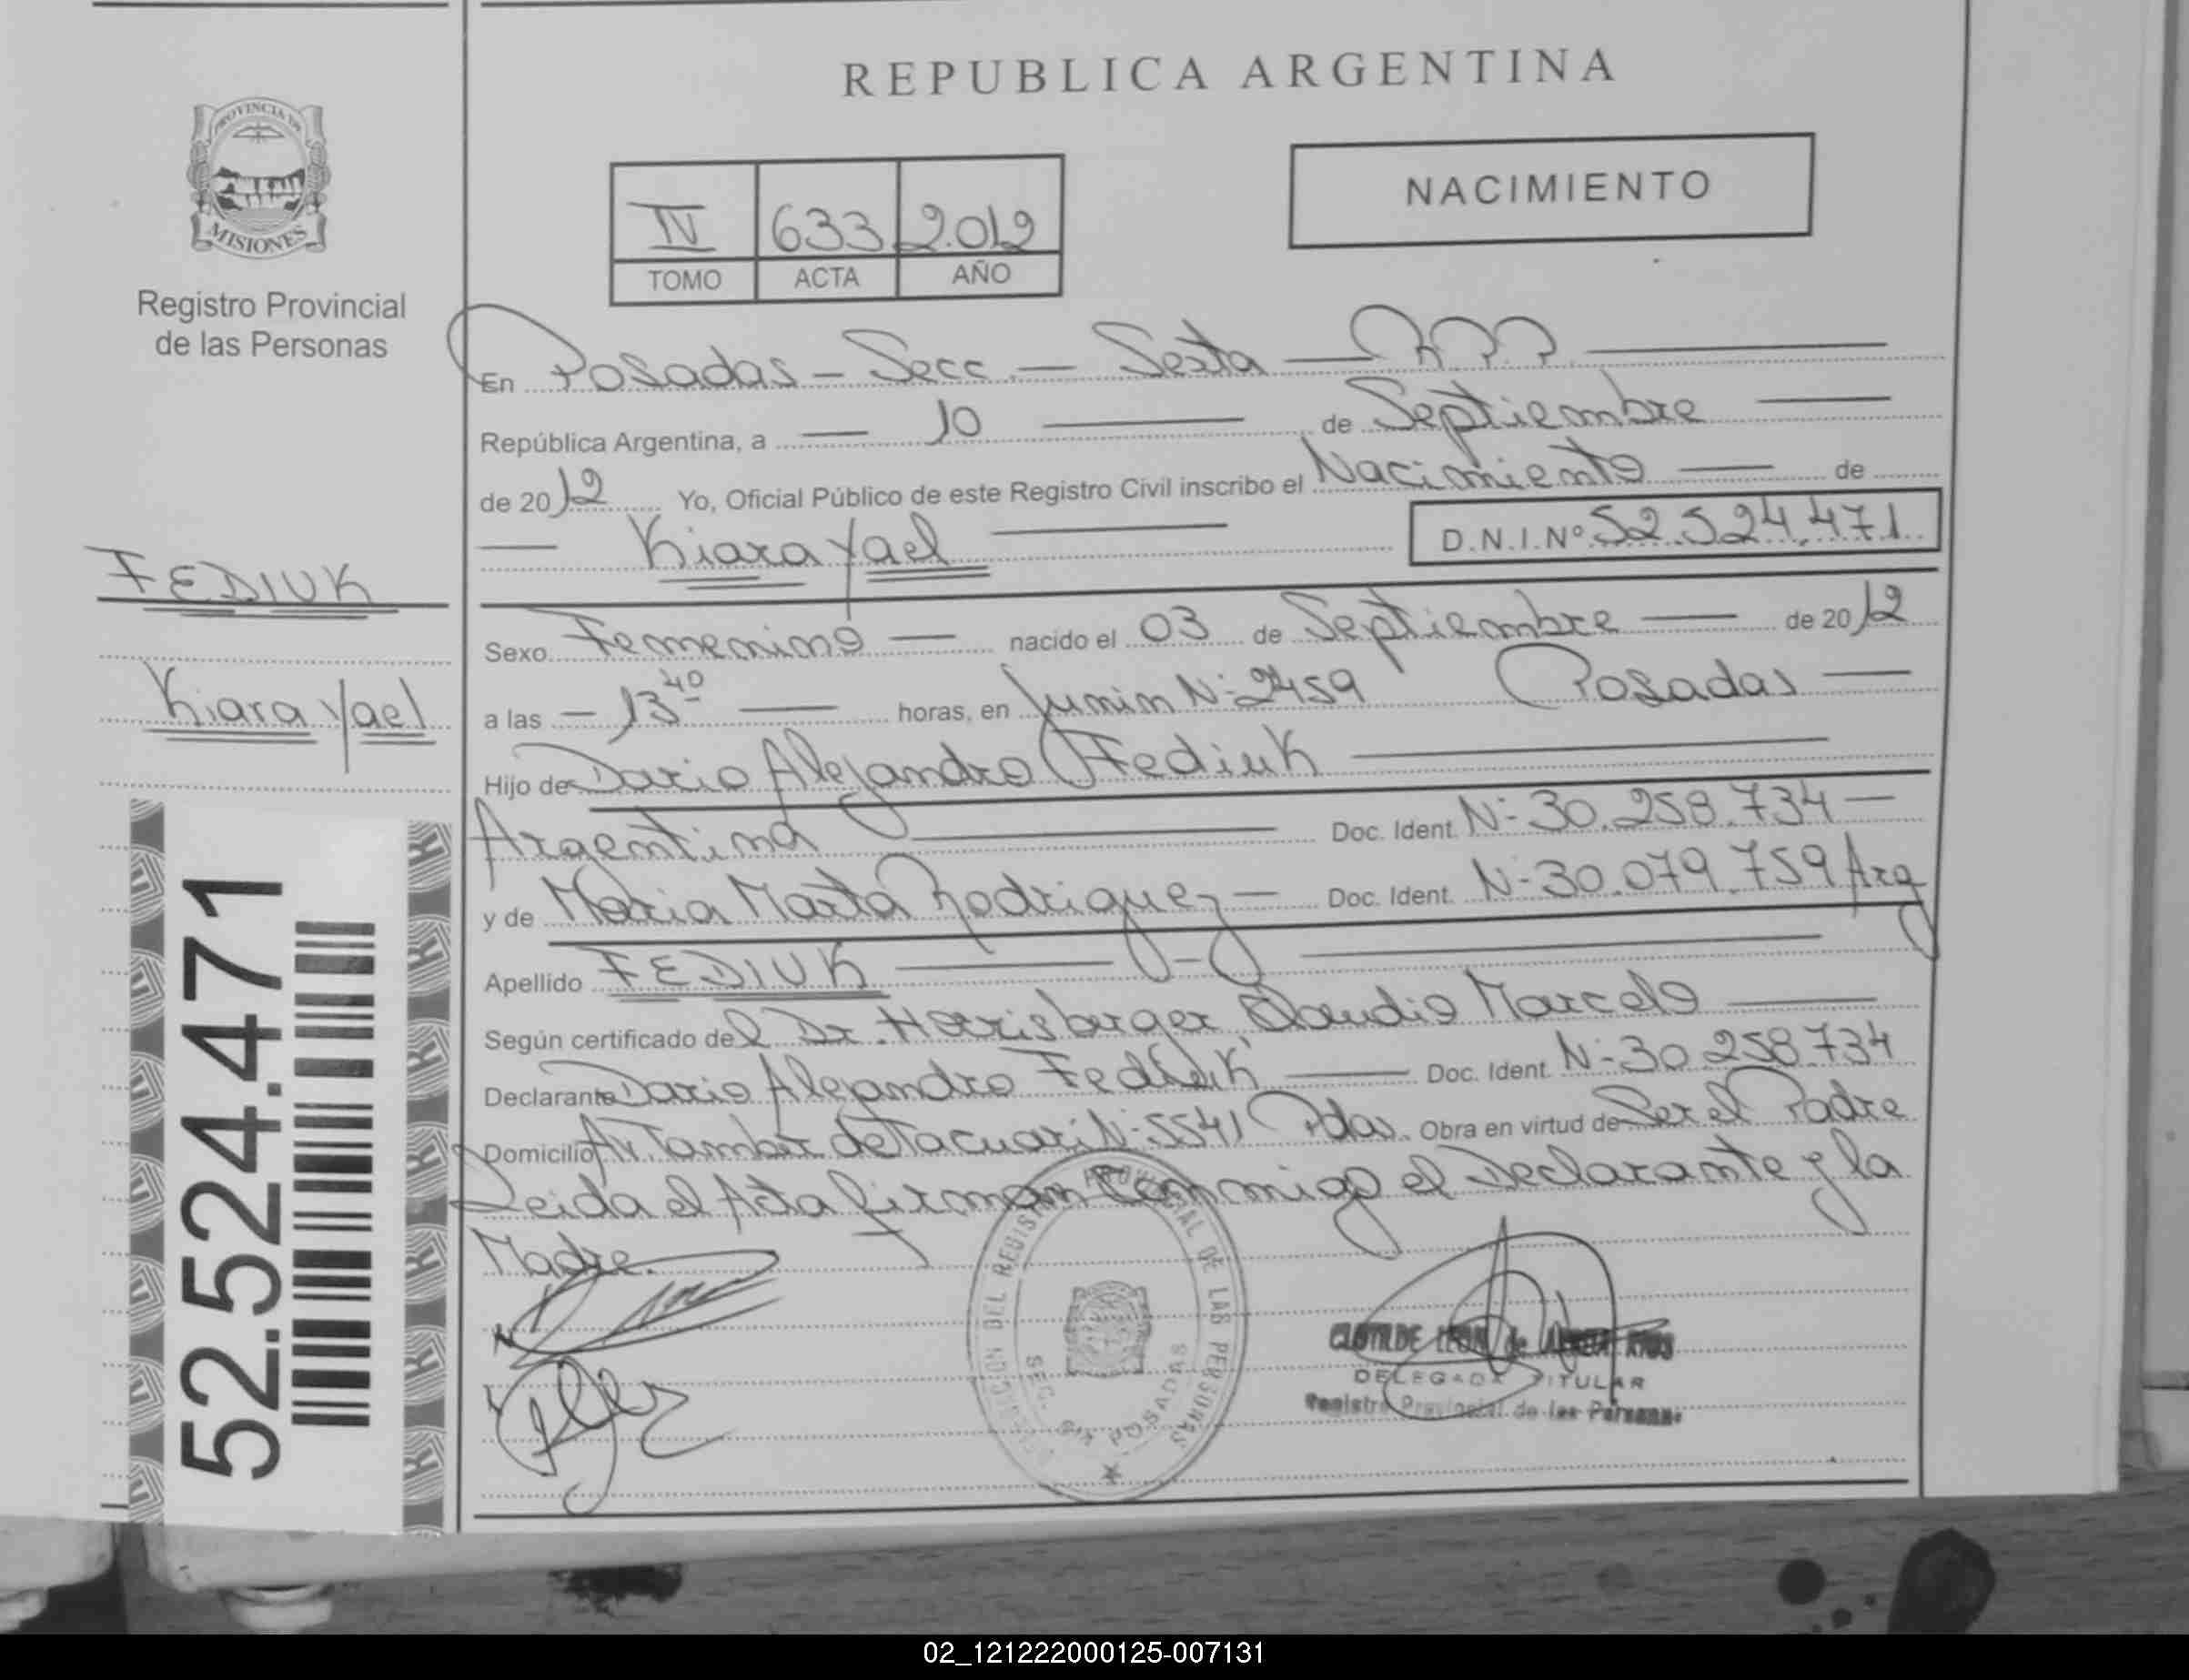 REPUBLICA ARGENTINA
PROVINCIA DE
MISIONES
Registro Provincial
de las Personas
NACIMIENTO
IV 633 2.012
TOMO ACTA AÑO
En Posadas - Secc. - Sexta - R.P.P.
República Argentina, a - 10 - de Septiembre -
de 2012 Yo, Oficial Público de este Registro Civil inscribo el Nacimiento - de
- Kiara Yael - D.N.I.Nº 52.524.471
FEDIUK
Kiara Yael
Sexo Femenino - nacido el 03 de Septiembre - de 2012
a las - 13 40 - horas, en Junin Nº 2459 Posadas -
Hijo de Dario Alejandro Fediuk -
Argentina - Doc. Ident. Nº 30.258.734 -
y de Maria Marta Rodriguez - Doc. Ident. Nº 30.079.759 Arg
Apellido FEDIUK -
Según certificado del Dr. Horrisberger Claudio Marcelo -
Declarante Dario Alejandro Fediuk - Doc. Ident. Nº 30.258.734
Domicilio Av. Tambor de Tacuari Nº 5541 Pdas. Obra en virtud de Ser el Padre
Leida el Acta firman Conmigo el Declarante y la
Madre.
52.524.471
PROVINCIAL DE LAS PERSONAS
SEC. 6ta POSADAS
CLOTILDE LEON de
DELEGADA TITULAR
Registro Provincial de las Personas
02_121222000125-007131